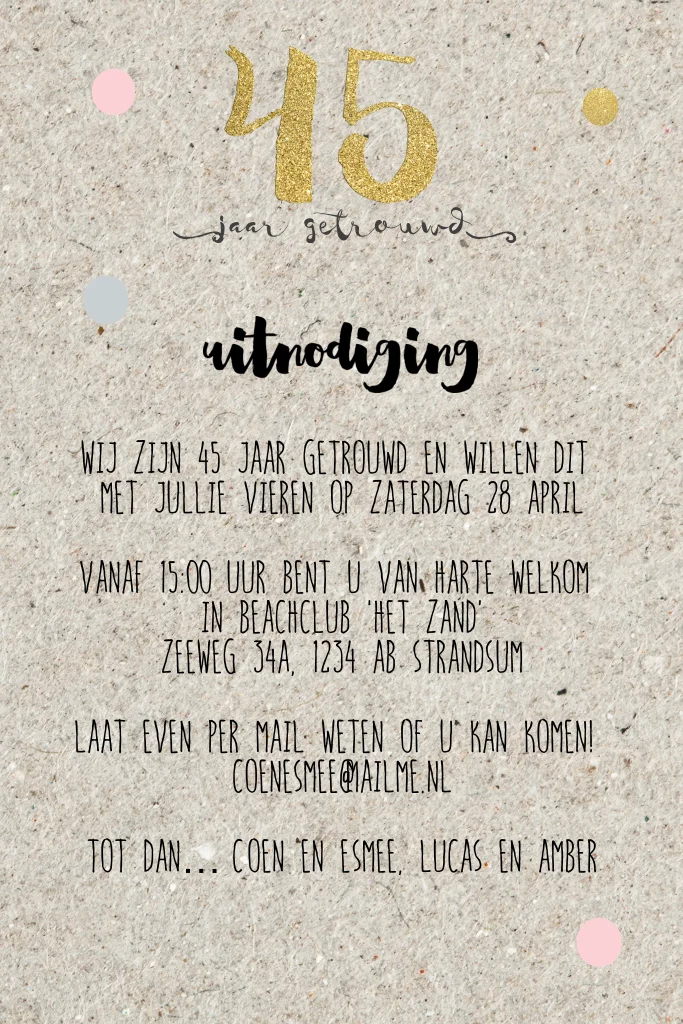 45
jaar getrouwd
uitnodiging
WIJ ZIJN 45 JAAR GETROUWD EN WILLEN DIT
MET JULLIE VIEREN OP ZATERDAG 28 APRIL
VANAF 15:00 UUR BENT U VAN HARTE WELKOM
IN BEACHCLUB 'HET ZAND'
ZEEWEG 34A, 1234 AB STRANDSUM
LAAT EVEN PER MAIL WETEN OF U KAN KOMEN!
COENESMEE@MAILME.NL
TOT DAN... COEN EN ESMEE, LUCAS EN AMBER